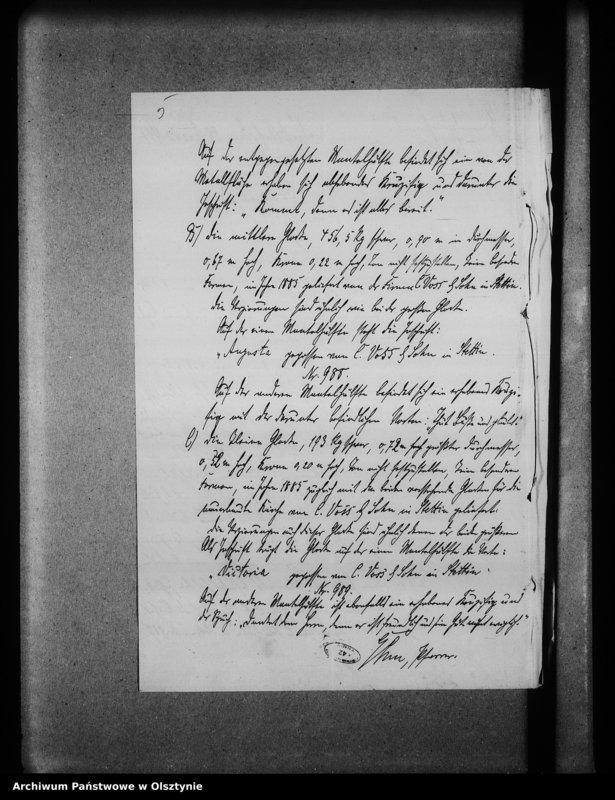 5
Auf der entgegengesetzten Mantelhälfte befindet sich ein von der
Metallfläche erhaben sich abhebendes Kruzifix und darunter die
Inschrift: „Kommt, denn es ist alles bereit."
B) die mittlere Glocke, 456,5 kg schwer, 0,90 m im Durchmesser,
0,67 m hoch, Krone 0,22 m hoch, Ton nicht festzustellen, keine besonderen
Formen, im Jahre 1885 geliefert von der Firma C Voss & Sohn in Stettin.
Die Verzierungen sind ähnlich wie bei der großen Glocke.
Auf der einen Mantelhälfte steht die Inschrift:
„Augusta gegossen von C. Voss & Sohn in Stettin.
Nr. 988.
Auf der anderen Mantelhälfte befindet sich ein erhabenes Kruzi-
fix mit den darunter befindlichen Worten: „Thut Buße und glaubt."
C) Die kleine Glocke, 193 kg schwer, 0,72 m größter Durchmesser,
0,52 m hoch, Krone 0,20 m hoch, Ton nicht festzustellen, keine besonderen
Formen, im Jahre 1885 zugleich mit den beiden Glocken für die
neuerbaute Kirche von C. Voss & Sohn in Stettin geliefert.
Die Verzierungen auf dieser Glocke sind ähnlich denen der beiden größeren
Als Inschrift trägt die Glocke auf der einen Mantelhälfte die Worte:
„Victoria gegossen von C. Voss & Sohn in Stettin.
Nr. 989.
Auf der anderen Mantelhälfte ist ebenfalls ein erhabenes Kruzifix und
der Spruch: „Danket dem Herrn, denn er ist freundlich und
42
Pfarrer.
Archiwum Państwowe w Olsztynie